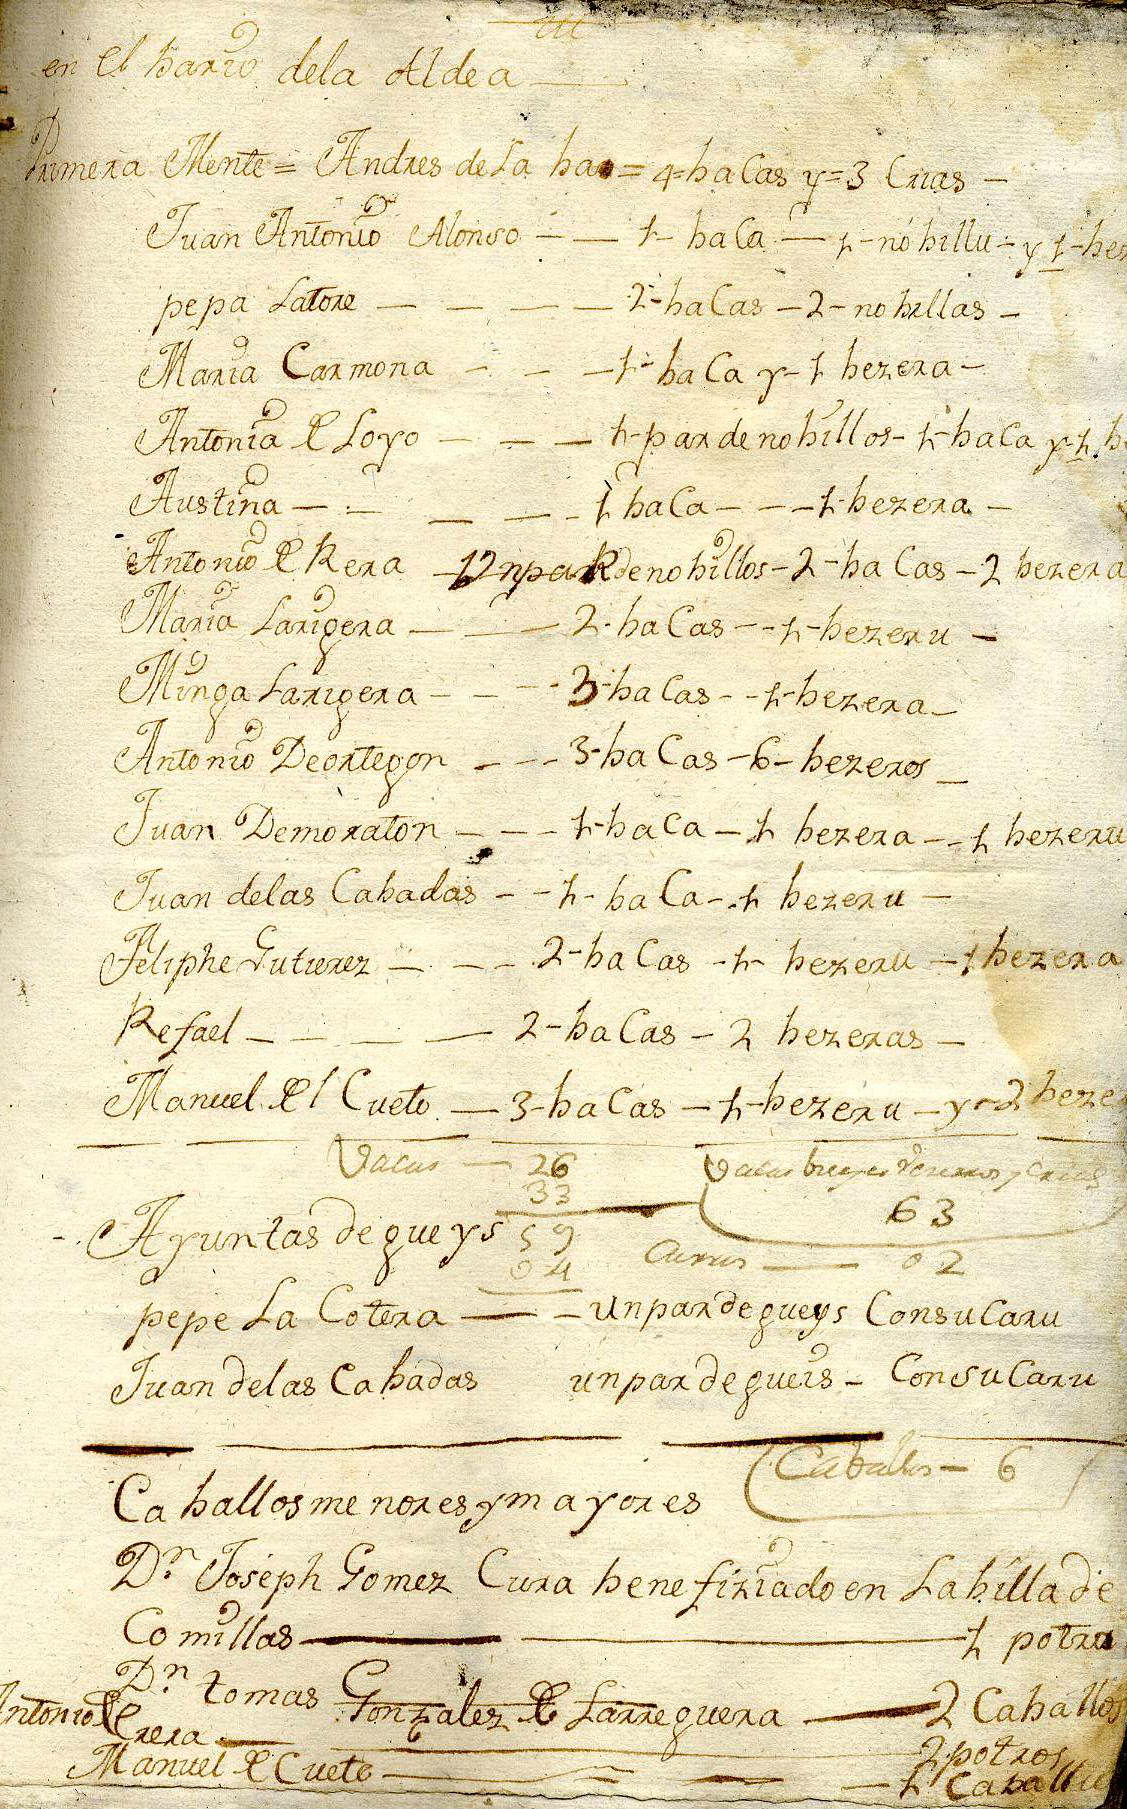 en El bario dela Aldea
Primera Mente = Andres de La ha = 4 = baCas y = 3 Crias
Juan Antonio Alonso 1 baCa 1 nobillu y 1 be
pepa Latore 2 baCas 2 nobillas
Maria Carmona 1 baCa y 1 bezera
Antonia de Loyo 1 par de nobillos 1 baCa y 1 b
Austina 1 baCa 1 bezera
Antonio de Rera 1 Un par de nobillos 2 baCas 2 bezera
Maria Larigera 2 baCas 1 bezeru
Minga Larigera 3 baCas 1 bezera
Antonio Deortegon 3 baCas 6 bezeros
Juan Demoraton 1 baCa 1 bezera 1 bezeru
Juan delas Cabadas 1 baCa 1 bezeru
Feliphe Gutierez 2 baCas 1 bezeru 1 bezera
Refael 2 baCas 2 bezeras
Manuel del Cueto 3 baCas 1 bezeru y 2 beze
Vacas 26
33
59
04
Vacas bueyes y crias
63
Carros 02
Ayuntas de gueys
pepe La Cotera un par de gueys Consu Caru
Juan delas Cabadas un par de gueis Consu Caru
Caballos 6
Caballos menores y mayores
Dn. Joseph Gomez Cura benefiziado en La billa de
Comillas 1 potra
Dn tomas Gonzalez de Larreguera 2 Caballos
Antonio de rera 2 potros
Manuel de Cueto 1 Caballu